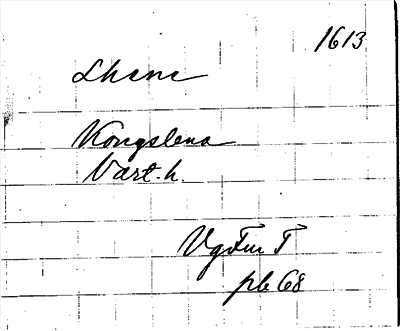 1613
Lhene
Kongslena
Vart. h.
Vg Fur T
pb 68